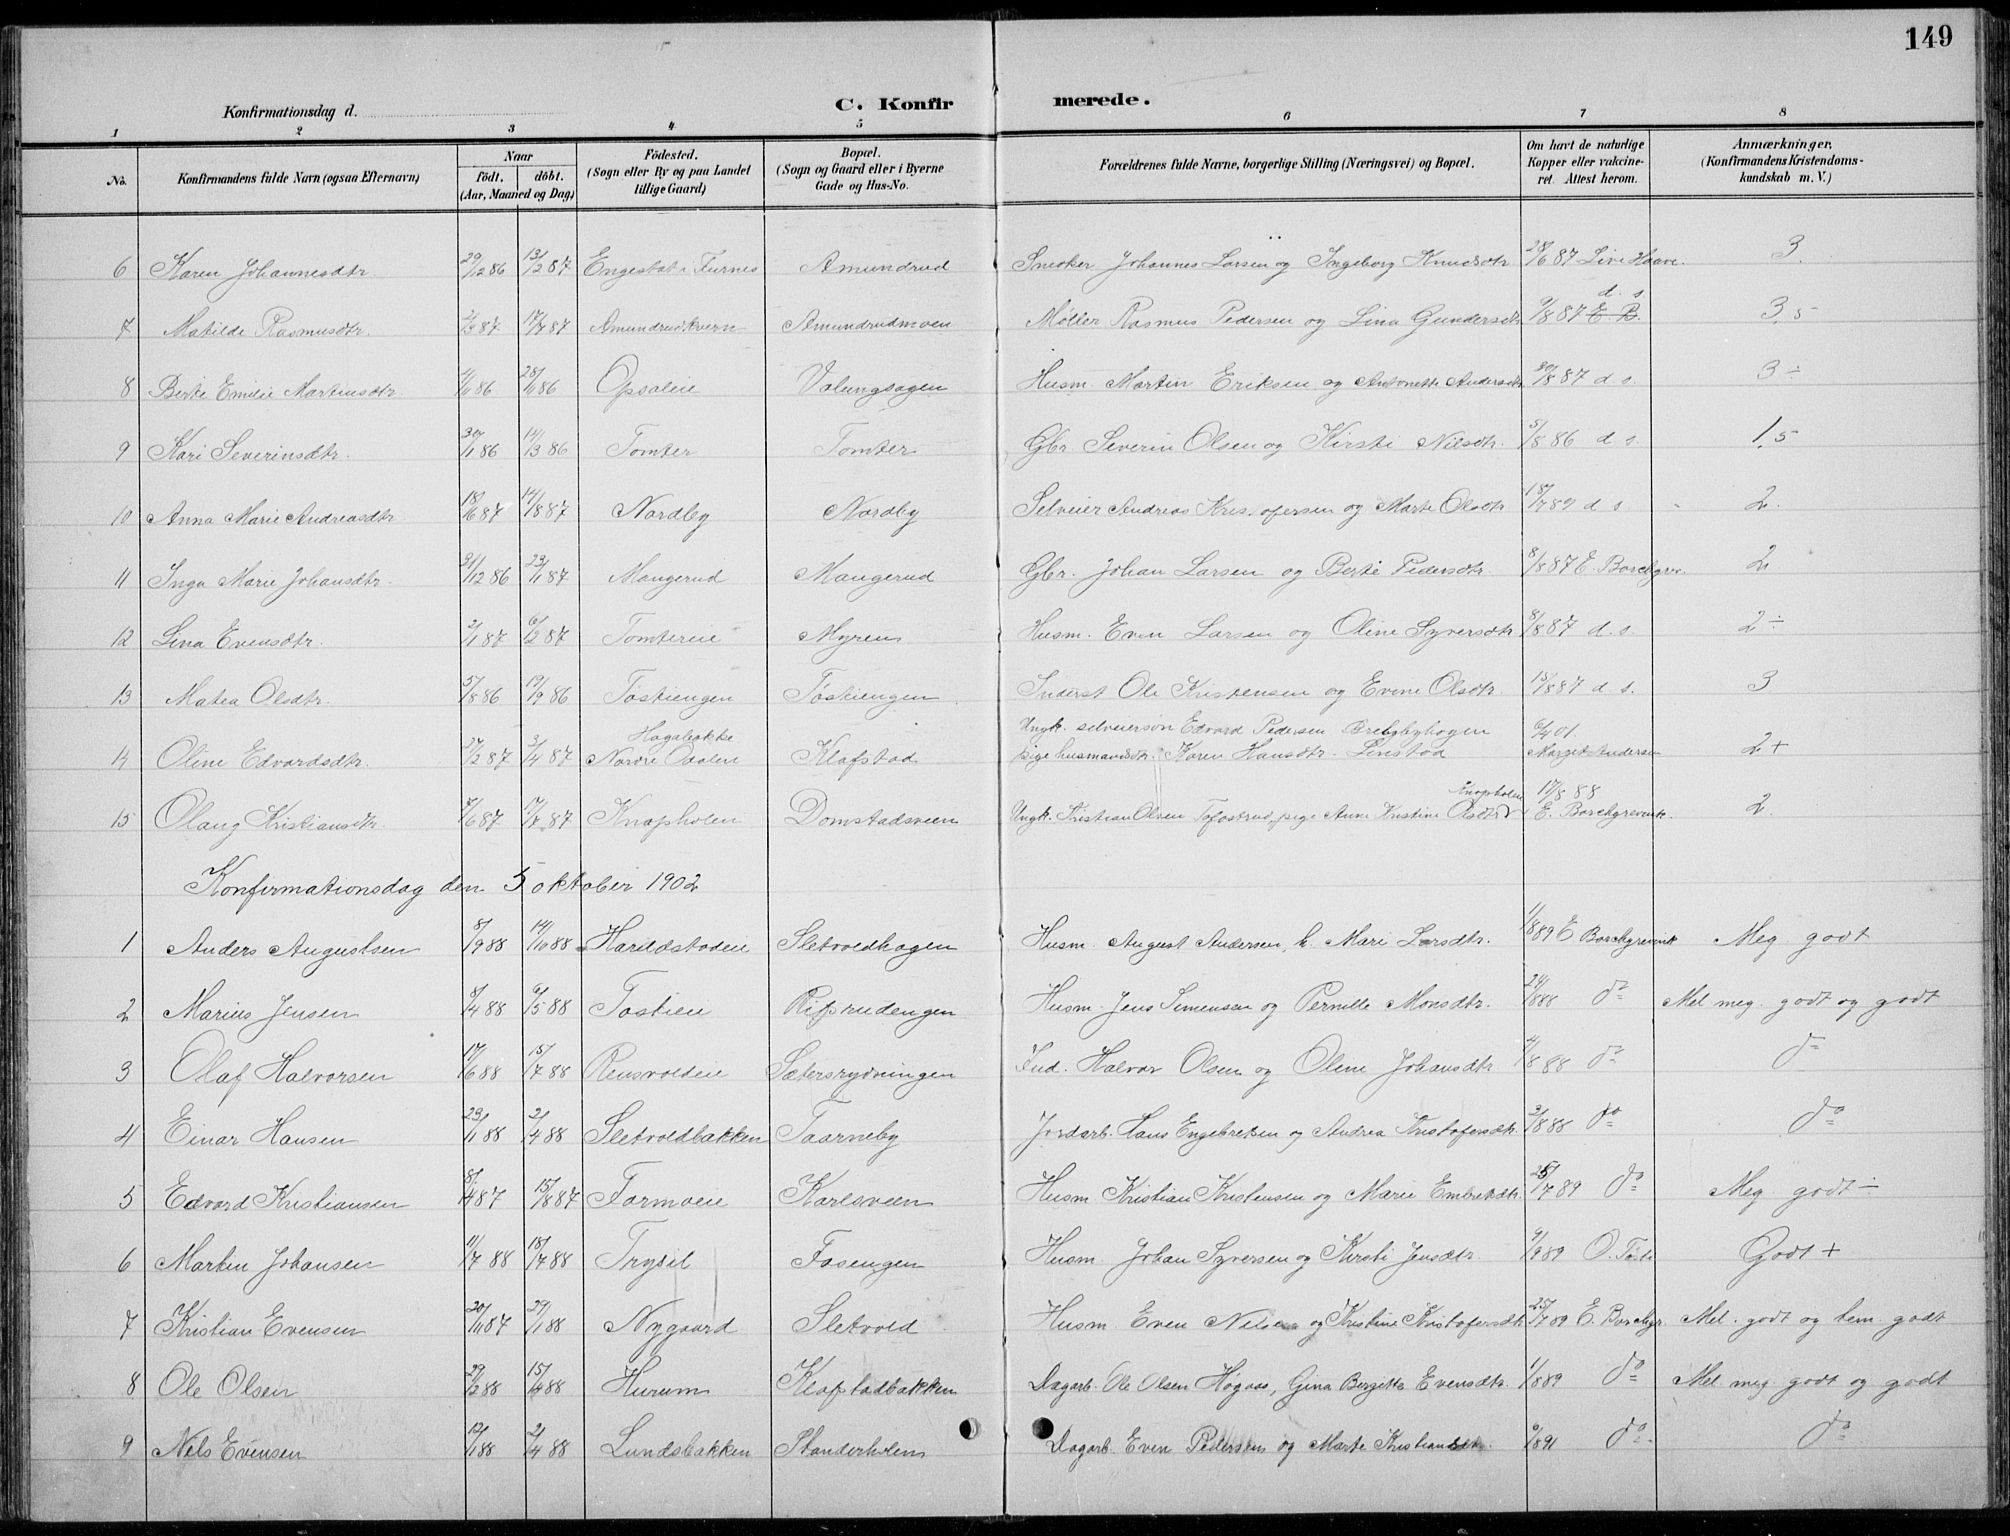 149
Konfirmationsdag d.
C. Konfirmerede.
1 2 3 4 5 6 7 8
No. Konfirmandens fulde Navn (ogsaa Efternavn) Naar födt. döbt. (Aar, Maaned og Dag) Födested. (Sogn eller By og paa Landet tillige Gaard) Bopæl. (Sogn og Gaard eller i Byerne Gade og Hus-No. Forældrenes fulde Navne, borgerlige Stilling (Næringsvei) og Bopæl. Om havt de naturlige Kopper eller vaccineret. Attest herom. Anmærkninger, (Konfirmandens Kristendomskundskab m. V.)
6 Karen Johannesdtr. 29/12 86 13/2 87 Engestat i Furnes Amundrud Snedker Johannes Larsen og Ingeborg Knudsdtr 28/6 87 Live Haave. 3.
7 Matilde Rasmusdtr. 87 17/7 87 Amundrudkvern Amundrudmoen Møller Rasmus Pedersen og Lina Gundersdtr 9/8 87 E B. d. s 3,5
8 Berte Emilie Martinsdtr 86 28/11 86 Opsaleie Volungsagen Husm. Martin Eriksen og Antonette Andersdtr 30/8 87 d s. 3 ÷
9 Kari Severinsdtr. 30/1 86 14/3 86 Tomter Tomter Gbr Severin Olsen og Kirsti Nilsdtr. 5/8 86 d s. 1,5
10 Anna Marie Andreasdtr 18/6 87 14/8 87 Nordby Nordby Selveier Andreas Kristofersen og Marte Olsdtr 18/7 89 d s. 2.
11 Inga Marie Johansdtr. 31/12 86 23/1 87 Maugerud Maugerud Gbr. Johan Larsen og Berte Pedersdtr 8/8 87 E. Borchgrev. 2
12 Lina Evensdtr. 2/1 87 6/2 87 Tomtereie Myren Husm. Even Larsen og Oline Syversdtr 8/8 87 d. s. 2 ÷
13 Matea Olsdtr. 5/8 86 19/9 86 Tostiengen Tostiengen Inderst Ole Kristensen og Evine Olsdtr. 15/8 87 d. s. 3
14 Oline Edvardsdtr. 27/2 87 3/4 87 Hagabakke Nordre Odalen Klofstad Ungk. selveiersøn Edvard Pedersen Brebybyhagen pige husmandsdtr. Karen Hansdtr. Linstad 6/4 01. Margit Andersen 2 +
15 Olaug Kristiansdtr. 7/6 87 17/7 87 Knapholen Domstadsveen Ungk. Kristian Olsen Tofastrud, pige Anne Kristine Olsdtr Knapholen 17/8 88 E. Borchgrevink. 2.
Konfirmationsdag den 5 oktober 1902
1 Anders Augustsen 8/9 88 14/10 88 Harildstadeie Sletvoldhagen Husm. August Andersen, h. Mari Larsdtr. 1/8 89 E Borchgrevink Meg godt
2 Marius Jensen 8/4 88 6/5 88 Tostieie Rifsrudengen Husm. Jens Simensen og Pernille Monsdtr. 24/8 88 do Mel. meg. godt og godt
3 Olaf Halvorsen 17/6 88 15/7 88 Rensvoldeie Sætersrydningen Ind. Halvor Olsen og Oline Johansdtr 4/8 88 do do
4 Einar Hansen 23/1 88 2/4 88 Sletvoldbakken Taarneby Jordarb. Hans Engebretsen og Andrea Kristofersdtr. 3/8 88 do do
5 Edvard Kristiansen 8/4 87 15/8 87 Formoeie Karlsveen Husm. Kristian Kristensen og Marie Embretsdtr. 25/7 89 do Meg godt ÷
6 Martin Johansen 11/7 88 18/7 88 Trysil Fosengen Husm. Johan Syversen og Kirsti Jensdtr. 9/9 89 O. Toste Godt +
7 Kristian Evensen 20/11 87 29/1 88 Nygaard Sletvold Husm. Even Nilsen og Kristine Kristofersdtr. 25/7 89 E. Borchgr. Mel. godt og tem. godt
8 Ole Olsen 29/2 88 15/4 88 Hurum Klofstadbakken Dagarb. Ole Olsen Høgaas, Gina Bergitte Evensdtr. 1/8 89 do Mel meg. godt og godt
9 Nils Evensen 12/1 88 2/4 88 Lundsbakken Standerholen Dagarb. Even Pedersen og Marte Kristiansdtr. 6/8 91 do do